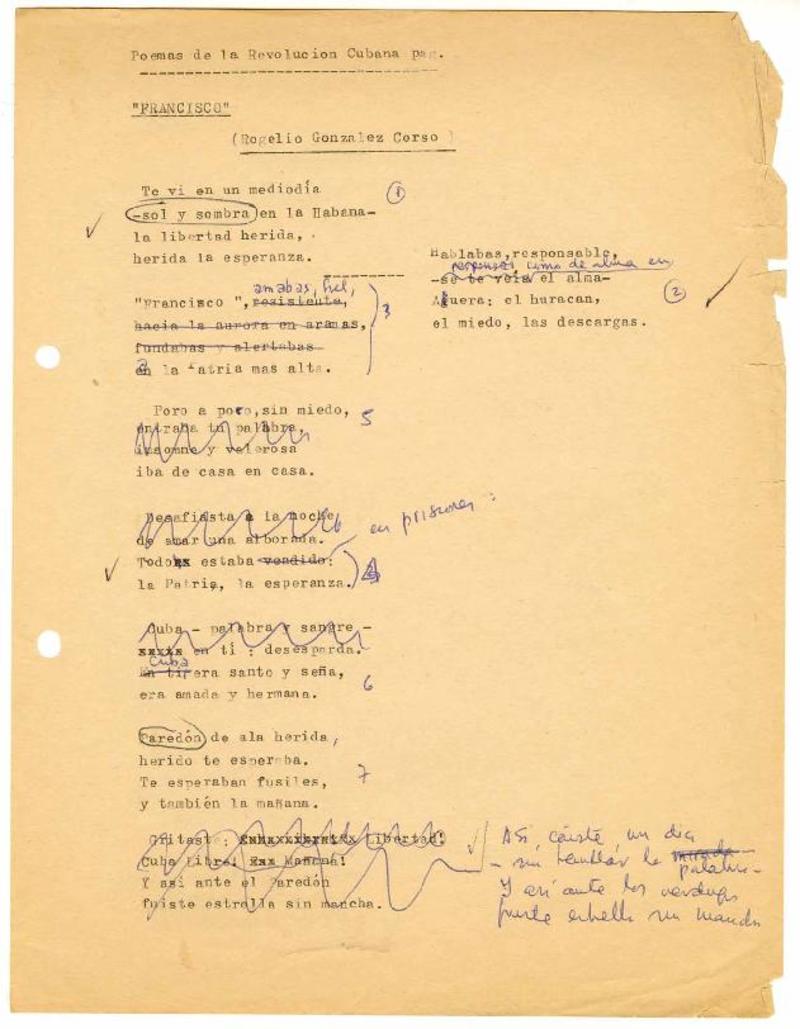 Poemas de la Revolucion Cubana pag.
"FRANCISCO"
(Rogelio Gonzalez Corso )
Te vi en un mediodía
①
-sol y sombra en la Habana-
la libertad herida,
herida la esperanza.
Hablabas,responsable,
-se te veía el alma-
Afuera: el huracan,
②
el miedo, las descargas.
amabas, fiel,
"Francisco ",resistente,
3
hacia la aurora en aramas,
fundabas y alertabas
a la Patria mas alta.
Poro a poro,sin miedo,
5
entraba tu palabra,
insomne y valerosa
iba de casa en casa.
Desafiasta a la noche
de amar una alborada.
en prisiones:
Todo estaba vendido:
la Patria, la esperanza.
4
Cuba - palabra y sangre -
xxxxx en ti : desesperda.
Cuba
En ti era santo y seña,
era amada y hermana.
6
Paredón de ala herida,
herido te esperaba.
Te esperaban fusiles,
7
y también la mañana.
Gritaste: Libertad!
Cuba Libre! xxx Mañana!
Y asi ante el Paredón
fuiste estrella sin mancha.
Así, caíste, un día
- sin temblar la mirada
palabra-
Y así ante los verdugos
fuiste estrella sin mancha